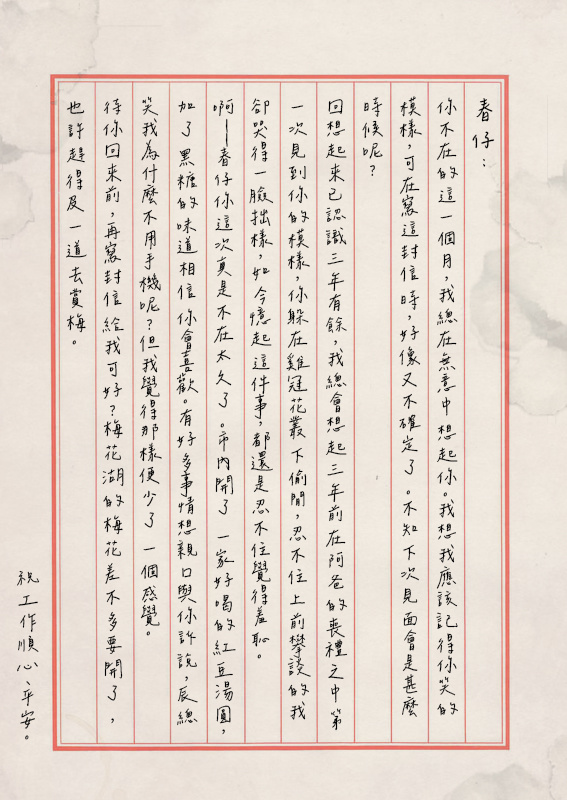 春仔：
你不在的這一個月，我總在無意中想起你。我想我應該記得你笑的
模樣，可在寫這封信時，好像又不確定了。不知下次見面會是甚麼
時候呢？
回想起來已認識三年有餘，我總會想起三年前在阿爸的喪禮之中第
一次見到你的模樣，你躲在雞冠花叢下偷閒，忍不住上前攀談的我
卻哭得一臉拙樣，如今憶起這件事，都還是忍不住覺得羞恥。
啊——春仔你這次真是不在太久了。市內開了一家好喝的紅豆湯圓，
加了黑糖的味道相信你會喜歡。有好多事情想親口與你訴說，辰總
笑我為什麼不用手機呢？但我覺得那樣便少了一個感覺。
待你回來前，再寫封信給我可好？梅花湖的梅花差不多要開了，
也許趕得及一道去賞梅。
祝工作順心、平安。